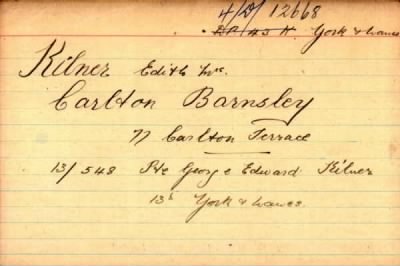 4/D/ 12668
York & Lancs
Kilner Edith Mrs.
Carlton Barnsley
77 Carlton Terrace
13/548 Pte George Edward Kilner
York & Lancs.